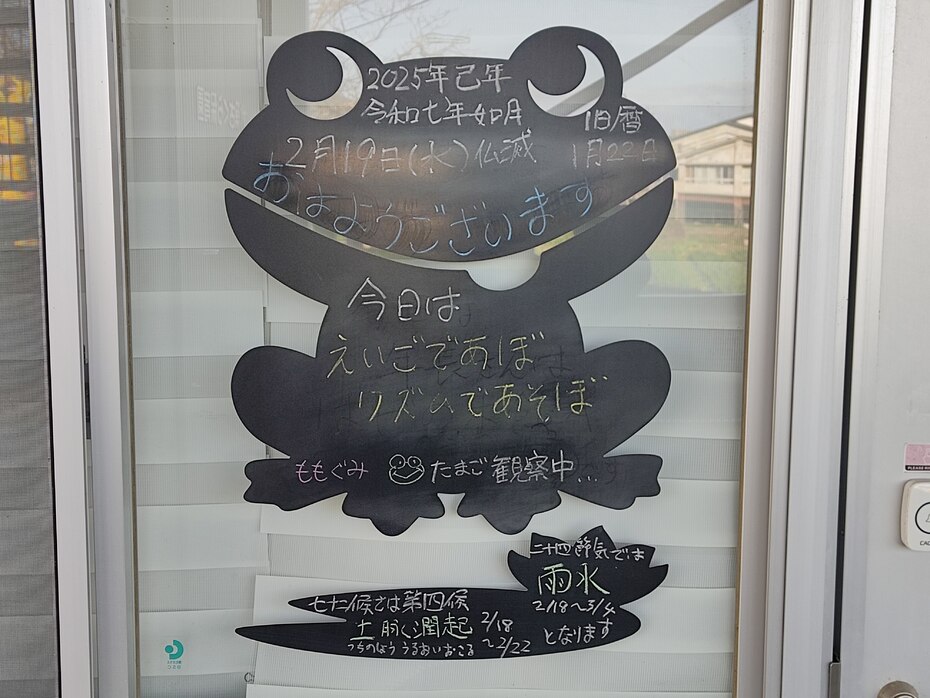 2025年己年
令和七年如月
旧暦
2月19日(水)仏滅
1月22日
おはようございます
今日は
えいごであぼ
リズムであそぼ
ももぐみ たまご観察中...
二十四節気では
雨水
2/18~3/4
となります
七十二候では第四候
土脉潤起
つちのしょう うるおいおこる
2/18
~2/22